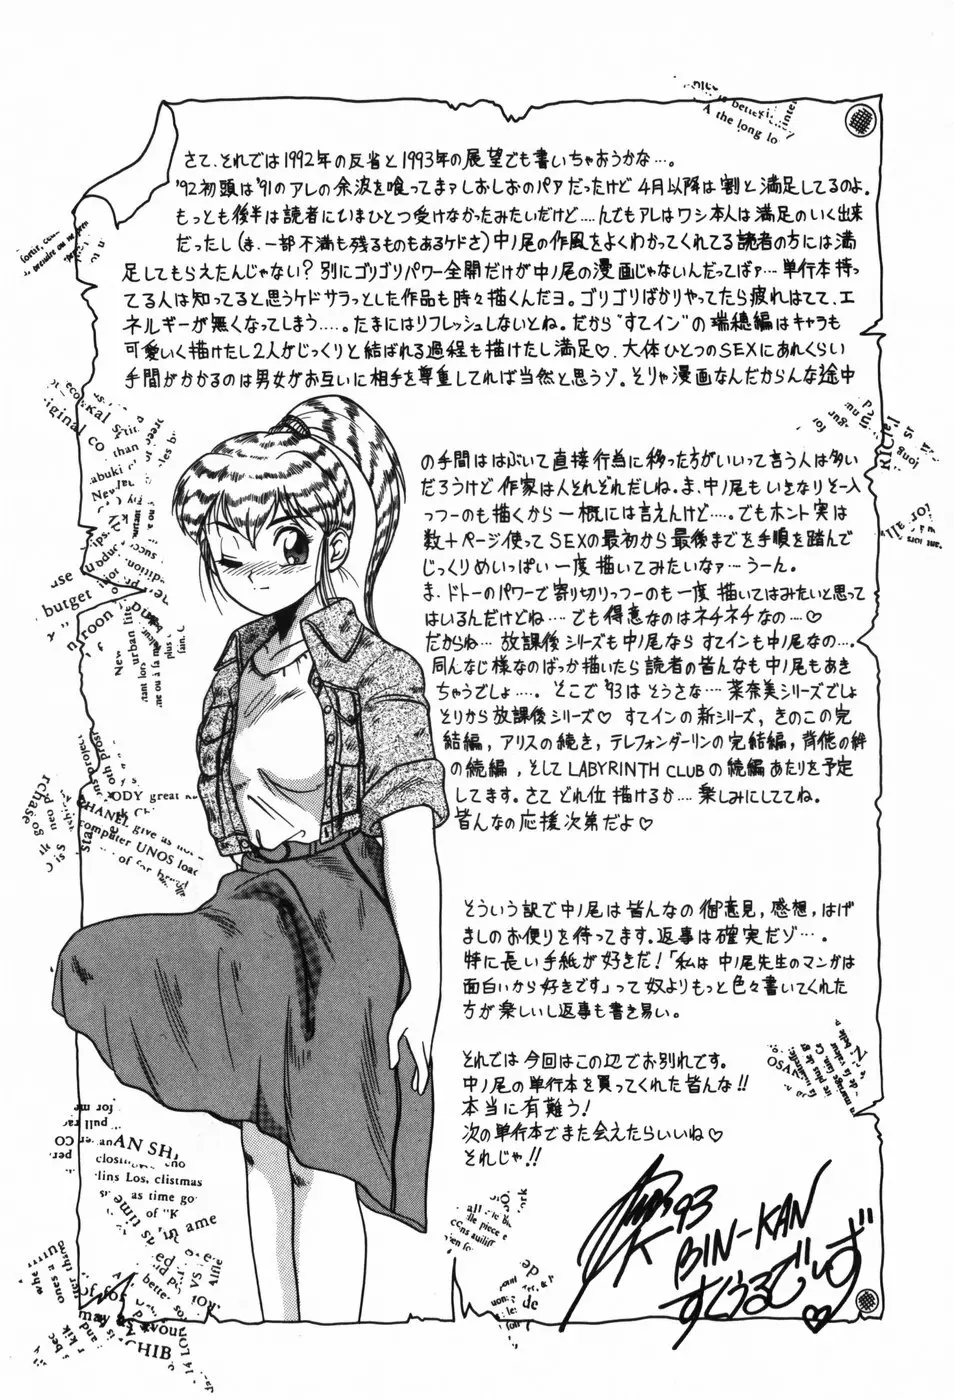 さて、それでは1992年の反省と1993年の展望でも書いちゃおうかな…。
'92初頭は'91のアレの余波を喰ってまァしおしおのパアだったけど4月以降は割と満足してるのよ。
もっとも後半は読者にいまひとつ受けなかったみたいだけど‥‥んでもアレはワシ本人は満足のいく出来
だったし(ま、一部不満も残るものもあるケドさ)中ノ尾の作風をよくわかってくれてる読者の方には満
足してもらえたんじゃない?別にゴリゴリパワー全開だけが中ノ尾の漫画じゃないんだってばァ…単行本持っ
てる人は知ってると思うケドサラっとした作品も時々描くんだヨ。ゴリゴリばかりやってたら疲れはてて、エ
ネルギーが無くなってしまう‥‥。たまにはリフレッシュしないとね。だから"すてイン"の瑞穂編はキャラも
可愛いく描けたし2人がじっくりと結ばれる過程も描けたし満足♡、大体ひとつのSEXにあれくらい
手間がかかるのは男女がお互いに相手を尊重してれば当然と思うゾ。そりゃ漫画なんだからんな途中
の手間ははぶいて直接行為に移った方がいいって言う人は多い
だろうけど作家は人それぞれだしね。ま、中ノ尾もいきなりそー入
っつーのも描くから一概には言えんけど‥‥。でもホント実は
数十ページ使ってSEXの最初から最後までを手順を踏んで
じっくりめいっぱい一度描いてみたいなァ…うーん。
ま、ドトーのパワーで寄り切りっつーのも一度描いてはみたいと思って
はいるんだけどね…でも得意なのはネチネチなの…♡
だからね…放課後シリーズも中ノ尾ならすてインも中ノ尾なの…。
同んなじ様なのばっか描いたら読者の皆んなも中ノ尾もあき
ちゃうでしょ…。そこで'93はそうさな…菜奈美シリーズでしょ
そりから放課後シリーズ♡すてインの新シリーズ,きのこの完
結編,アリスの続き,テレフォンダーリンの完結編,背徳の絆
の続編,そしてLABYRINTH CLUBの続編あたりを予定
してます。さてどれ位描けるか‥‥楽しみにしててね。
皆んなの応援次第だよ♡
そういう訳で中ノ尾は皆んなの御意見,感想,はげ
ましのお便りを待ってます。返事は確実だゾ…。
特に長い手紙が好きだ!「私は中ノ尾先生のマンガは
面白いから好きです」って奴よりもっと色々書いてくれた
方が楽しいし返事も書き易い。
それでは今回はこの辺でお別れです。
中ノ尾の単行本を買ってくれた皆んな!!
本当に有難う!
次の単行本でまた会えたらいいね♡
それじゃ!!
K'93
BIN-KAN
すくうるでいず♡
the long lo
iginal co
than
butget
urban life
ODY great
CHANEL give as
computer UNOS load
AN SH
lins Los, clistmas
as time go
of "K
may as your
CHIB
OSAK